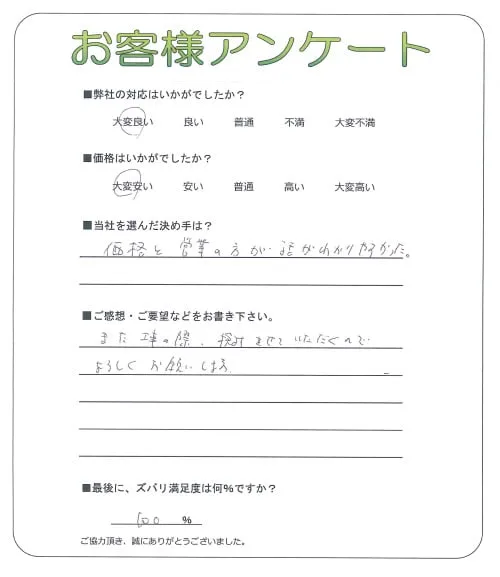 お客様アンケート
■弊社の対応はいかがでしたか？
大変良い 良い 普通 不満 大変不満
■価格はいかがでしたか？
大変安い 安い 普通 高い 大変高い
■当社を選んだ決め手は？
価格と営業の方が話がわかりやすかった。
■ご感想・ご要望などをお書き下さい。
また工事の際、検討させていただくので
よろしくお願いします
■最後に、ズバリ満足度は何％ですか？
100 %
ご協力頂き、誠にありがとうございました。